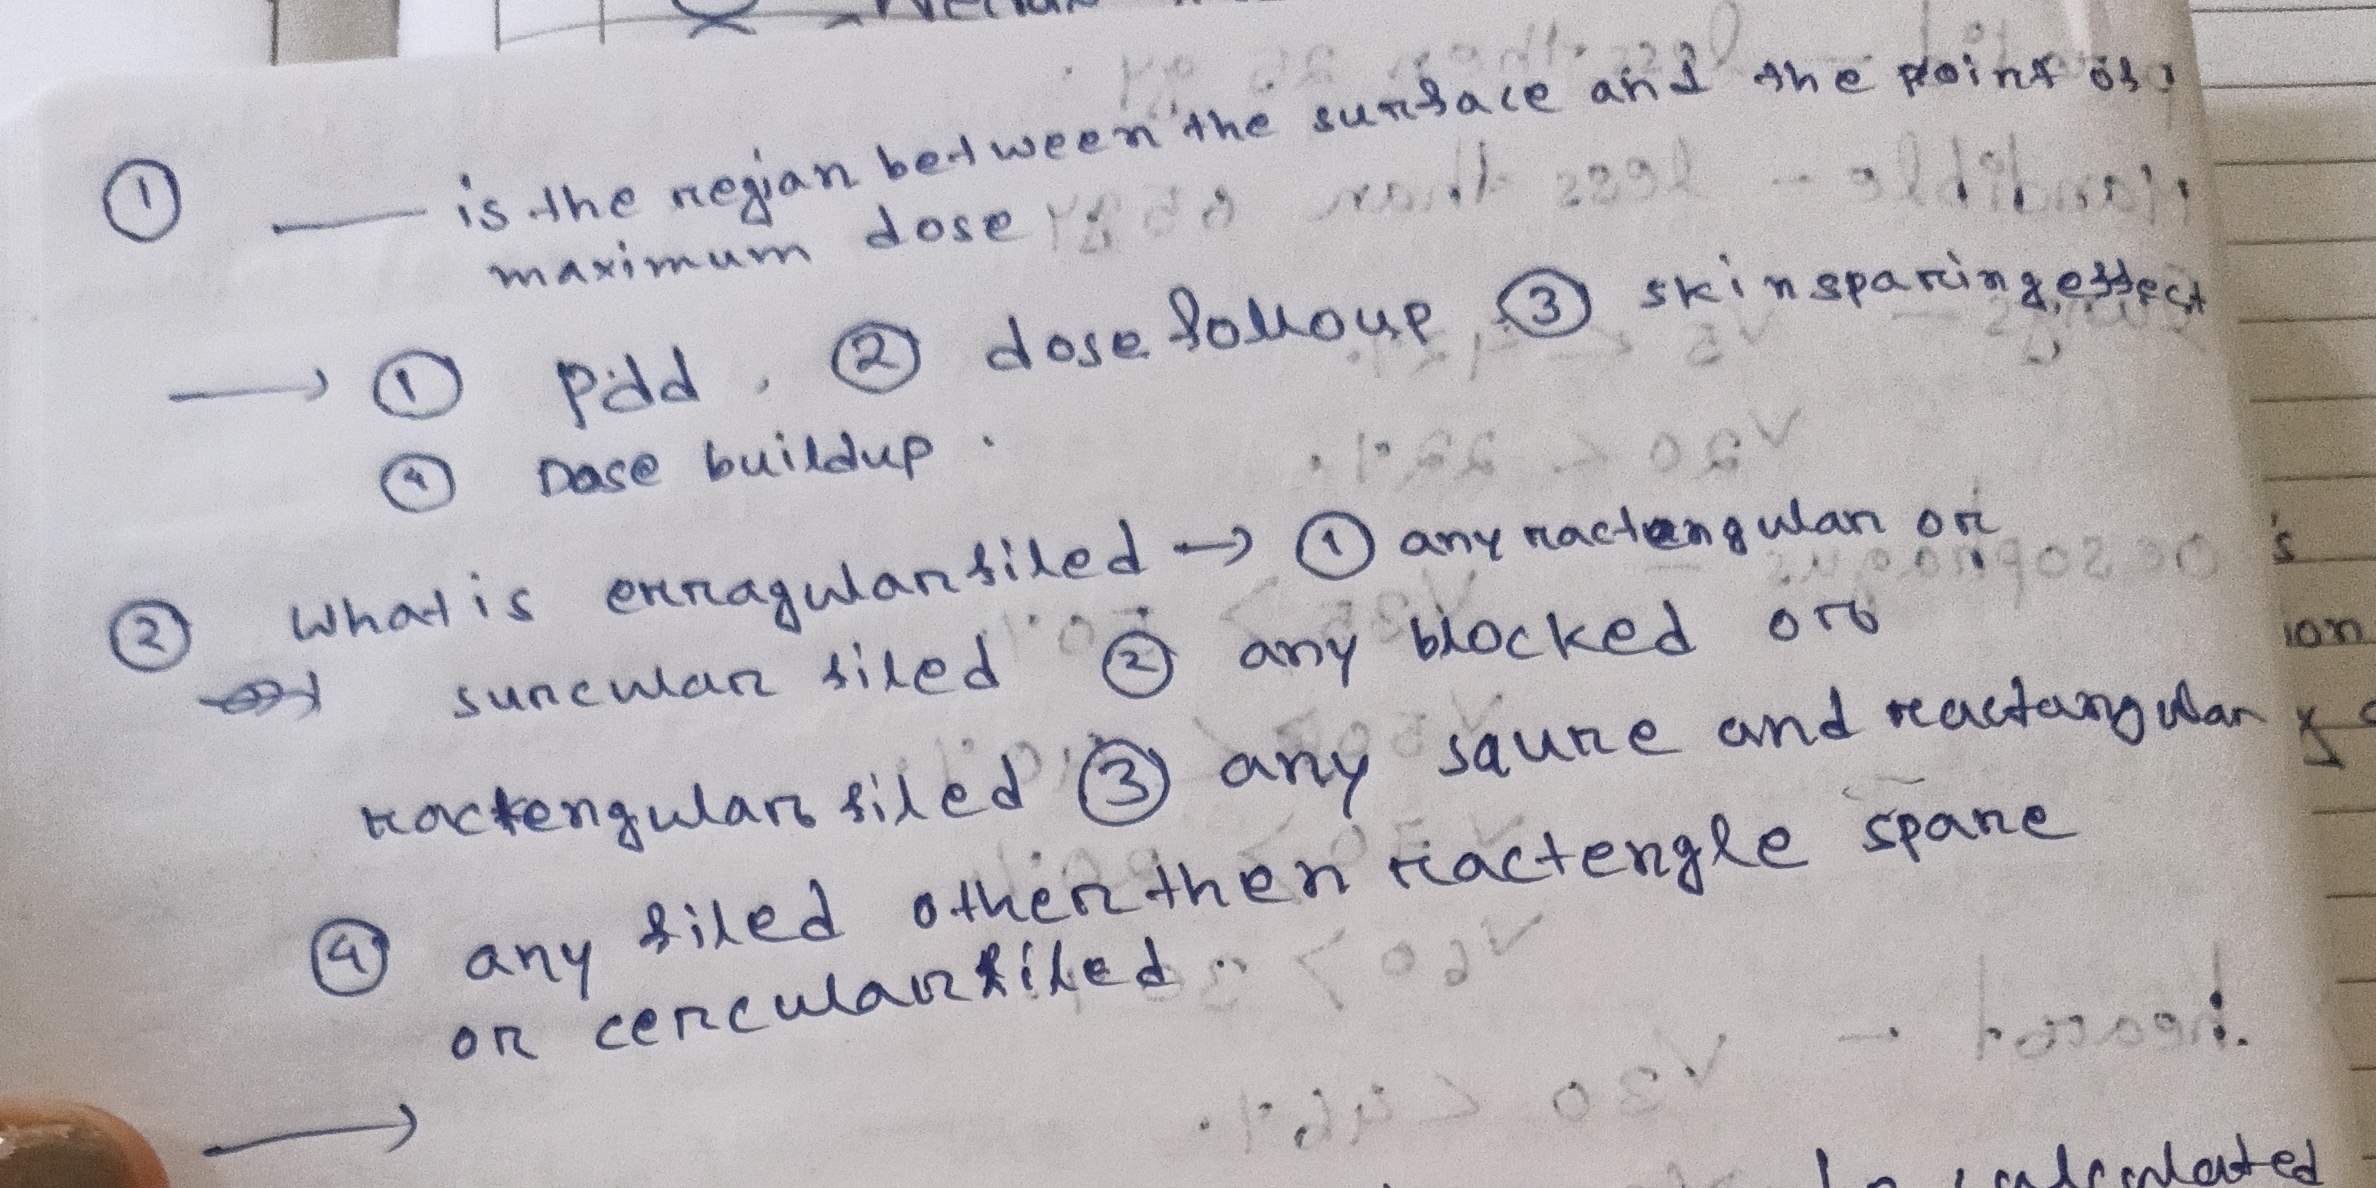 ① ___ is the region between the surface and the point of
maximum dose
→ ① Pdd . ② dose follloup ③ skin sparing effect
④ Dose buildup .
② What is erragular filed → ① any ractengular or
surcular filed ② any blocked or
ractengular filed ③ any saure and reactangular
④ any filed other then ractengle spare
or cercular filed ..
→
calculated